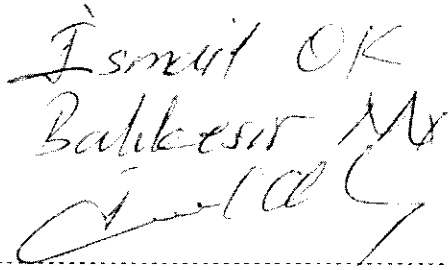 İsmail OK
Balıkesir Mv